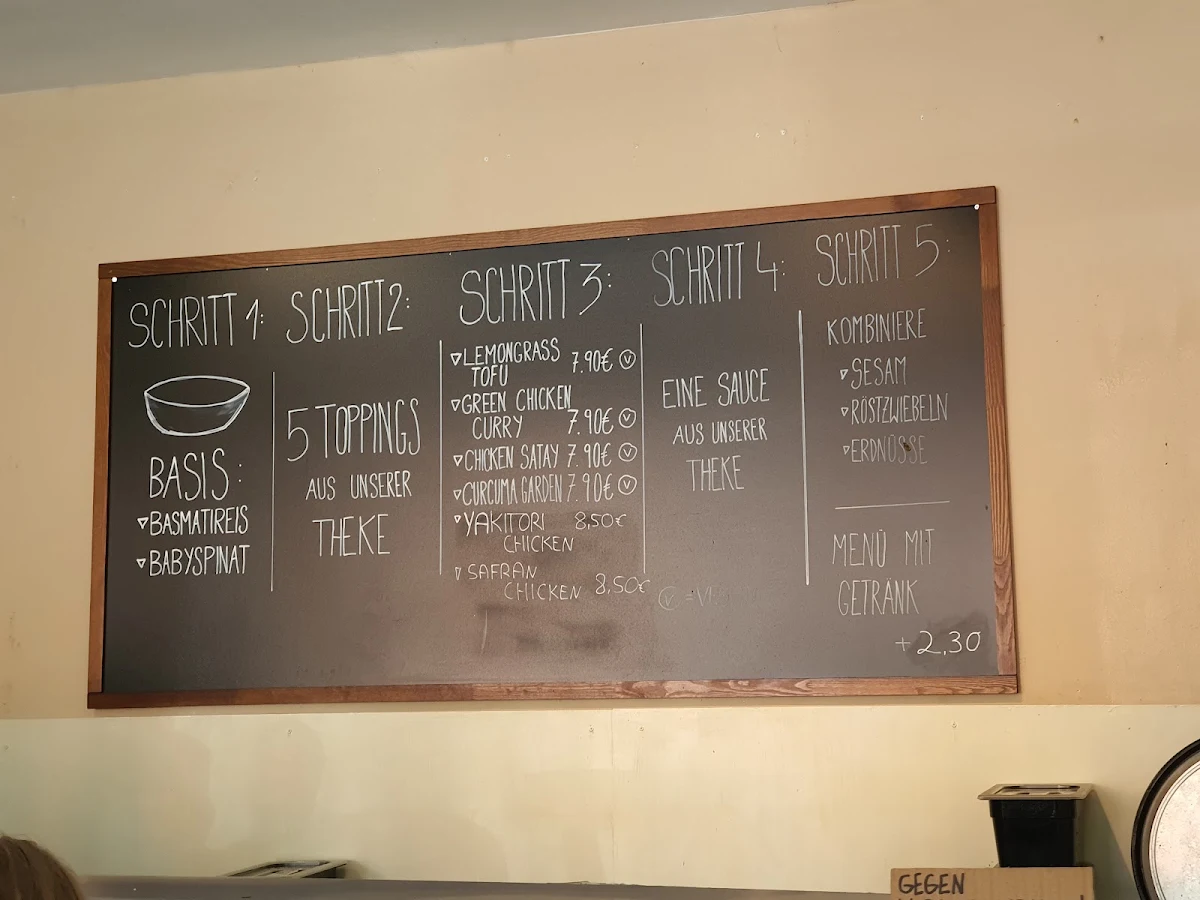 SCHRITT 1:
BASIS:
▽BASMATIREIS
▽BABYSPINAT
SCHRITT 2:
5 TOPPINGS
AUS UNSERER
THEKE
SCHRITT 3:
▽LEMONGRASS
TOFU 7.90€ Ⓥ
▽GREEN CHICKEN
CURRY 7.90€ Ⓥ
▽CHICKEN SATAY 7.90€ Ⓥ
▽CURCUMA GARDEN 7.90€ Ⓥ
▽YAKITORI 8,50€
CHICKEN
▽SAFRAN
CHICKEN 8,50€
SCHRITT 4:
EINE SAUCE
AUS UNSERER
THEKE
Ⓥ =
SCHRITT 5:
KOMBINIERE
▽SESAM
▽RÖSTZWIEBELN
▽ERDNÜSSE
MENÜ MIT
GETRÄNK
+2,30
GEGEN